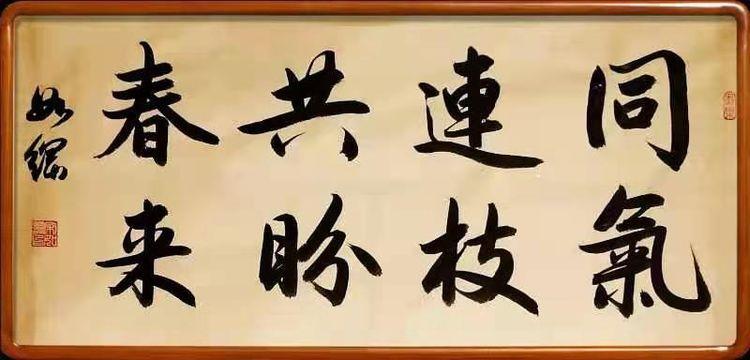 同氣
連枝
共盼
春来